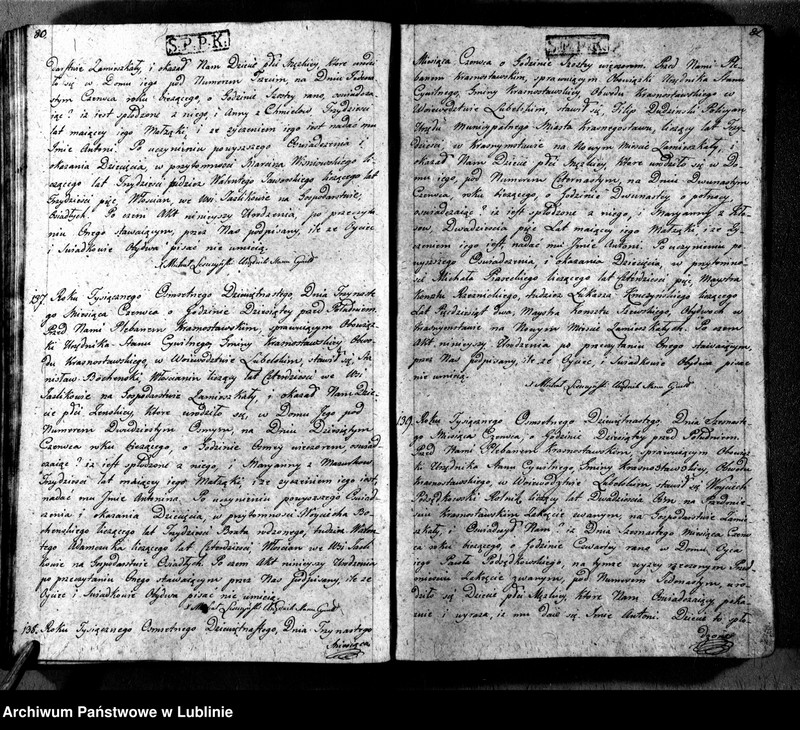 80.
S.P.P.K.
darstwie Zamieszkały, i okazał Nam Dziecię płci Męzkiey, które urodzi
ło się w Domu iego pod Numerem Trzecim, na Dniu Jedena
stym Czerwca roku bieżącego, o Godzinie Szostey rano, oswiadcza
iąc iż iest spłodzone z niego, i Anny z Trzydziesci
lat maiącey iego Małżąki, i że życzeniem iego iest nadać mu
Jmie Antoni. Po uczynieniu powyższego Oświadczenia i
okazania Dziecięcia, w przytomności Marcina Wisniowskiego li
czącego lat Trzydziesci tudzież Walentego Jaworskiego liczącego lat
Trzydziesci pięć, Włoscian, we Wsi Zastkowie na Gospodarstwie
Osiadłych. Po czem Akt ninieyszy Urodzenia, po przeczyta
niu Onego stawaiącym, przez Nas podpisany, ile że Oyciec
i Swiadkowie Obydwa pisać nie umieią.
X Michał Urzędnik Stanu Cywil
137. Roku Tysiącznego Osmsetnego Dziewiętnastego, Dnia Trzynaste
go Miesiąca Czerwca o Godzinie Dziesiątey przed Południem.
Przed Nami Plebanem Krasnostawskim, sprawuiącym Obowiąz
ki Urzędnika Stanu Cywilnego, Gminy Krasnostawskiey Obwo
du Krasnostawskiego, w Woiewodztwie Lubelskim, stawił się Sta
nisław Bochenski, Włoscianin liczący lat Czterdziesci we Wsi
Zastkowie na Gospodarstwie Zamieszkały, i okazał Nam Dzie
cie płci Zenskiey, które urodziło się, w Domu Jego pod
Numerem Dwudziestym Osmym, na Dniu Dziesiątym
Czerwca roku bieżącego, o Godzinie Osmey wieczorem, oswiad
czaiąc iż iest spłodzone z niego, i Maryanny z
Trzydziesci lat maiącey iego Małżąki, i że życzeniem iego iest,
nadać mu Jmie Antonina. Po uczynieniu powyższego Oswiad
czenia i okazania Dziecięcia, w przytomności Woyciecha Bo
chenskiego liczącego lat Trzydziesci Brata rodzonego, tudzież Walen
tego Adamczuka liczącego lat Czterdziesci Włoscian we Wsi Zast
kowie na Gospodarstwie Osiadłych. Po czem Akt ninieyszy Urodzenia
po przeczytaniu Onego stawaiącym przez Nas podpisany, ile że
Oyciec i Swiadkowie Obydwa pisać nie umieią.
X Michał Urzędnik Stanu Cywil
138. Roku Tysiącznego Osmsetnego Dziewiętnastego, Dnia Trzynastego
Miesiąca
S.P.P.K.
Miesiąca Czerwca o Godzinie Szostey wieczorem. Przed Nami Ple
banem Krasnostawskim, sprawuiącym Obowiązki Urzędnika Stanu
Cywilnego, Gminy Krasnostawskiey, Obwodu Krasnostawskiego w
Woiewodztwie Lubelskim, stawił się Filip Dudzinski
Urzędu Municypalnego Miasta Krasnegostawu, liczący lat Trzy
dziesci, w Krasnymstawie na Nowym Miescie Zamieszkały, i
okazał Nam Dziecię płci Męzkiey, które urodziło się w Do
mu iego, pod Numerem Czternastym, na Dniu Dwunastym
Czerwca, roku bieżącego, o Godzinie Dwunastey o połnocy
oswiadczaiąc iż iest spłodzone z niego, i Maryanny z
Dwadziescia pięć Lat maiącey iego Małżąki, i że ży
czeniem iego iest, nadać mu Jmie Antoni. Po uczynieniu po
wyższego Oswiadczenia, i okazania Dziecięcia, w przytomno
sci Michała Piaseckiego liczącego lat Czterdziesci pięć, Maystra
Kunsztu Rzeznickiego, tudzież Łukasza liczącego
Lat Pięćdziesiąt Dwa, Maystra Kunsztu Szewskiego, Obydwóch w
Krasnymstawie na Nowym Miescie Zamieszkałych. Po czem
Akt ninieyszy Urodzenia po przeczytaniu Onego stawaiącym,
przez Nas podpisany, ile że Oyciec, i Swiadkowie Obydwa pisać
nie umieią.
X Michał Urzędnik Stanu Cywil
139. Roku Tysiącznego Osmsetnego Dziewiętnastego, Dnia Szesnaste
go Miesiąca Czerwca, o Godzinie Dziesiątey przed Południem.
Przed Nami Plebanem Krasnostawskim, sprawuiącym Obowiąz
ki Urzędnika Stanu Cywilnego Gminy Krasnostawskiey, Obwodu
Krasnostawskiego, w Woiewodztwie Lubelskim, stawił się Woyciech
Rolnik, liczący lat Dwadziescia Osm na Przedmie
sciu Krasnostawskim zwanym, na Gospodarstwie Zamie
szkały, i Oswiadczył Nam iż Dnia Szesnastego Miesiąca Czerw
ca roku bieżącego, o Godzinie Czwartey rano, w Domu Oyca
iego Pawła na tymże wyżey rzeczonym Przed
miesciu zwanym, pod Numerem Siedmastym, uro
dziło się Dziecię płci Męzkiey, które Nam Oswiadczaiący poka
zuie i wyraża, iż mu daie się Jmie Antoni. Dziecie to spło
dzone
Archiwum Państwowe w Lublinie